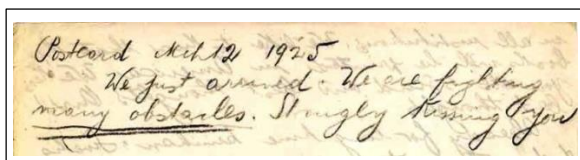 Postcard Mch 12 1925
We just arrived. We are fighting
many obstacles. Strongly kissing you